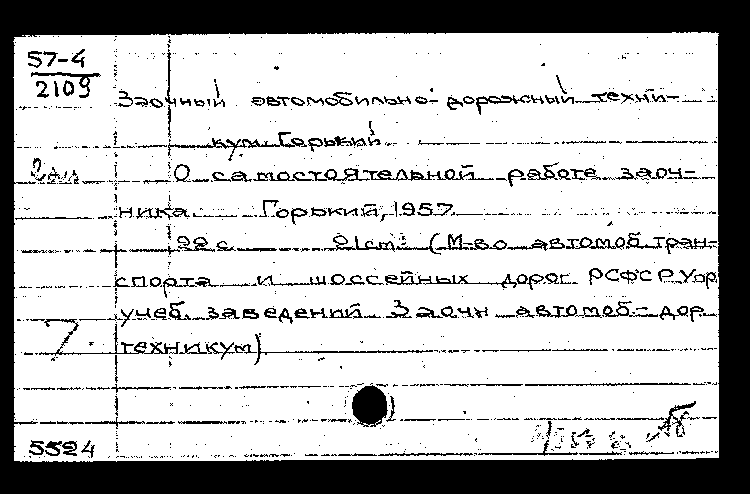 57-4
2109
Заочный автомобильно-дорожный техни-
кум. Горький.
2 экз
О самостоятельной работе заоч-
ника. Горький, 1957.
22 с. 21cm. (М-во автомоб. тран-
спорта и шоссейных дорог РСФСР. Упр.
учеб. заведений. Заочн. автомоб.-дор.
техникум).
7.
5524